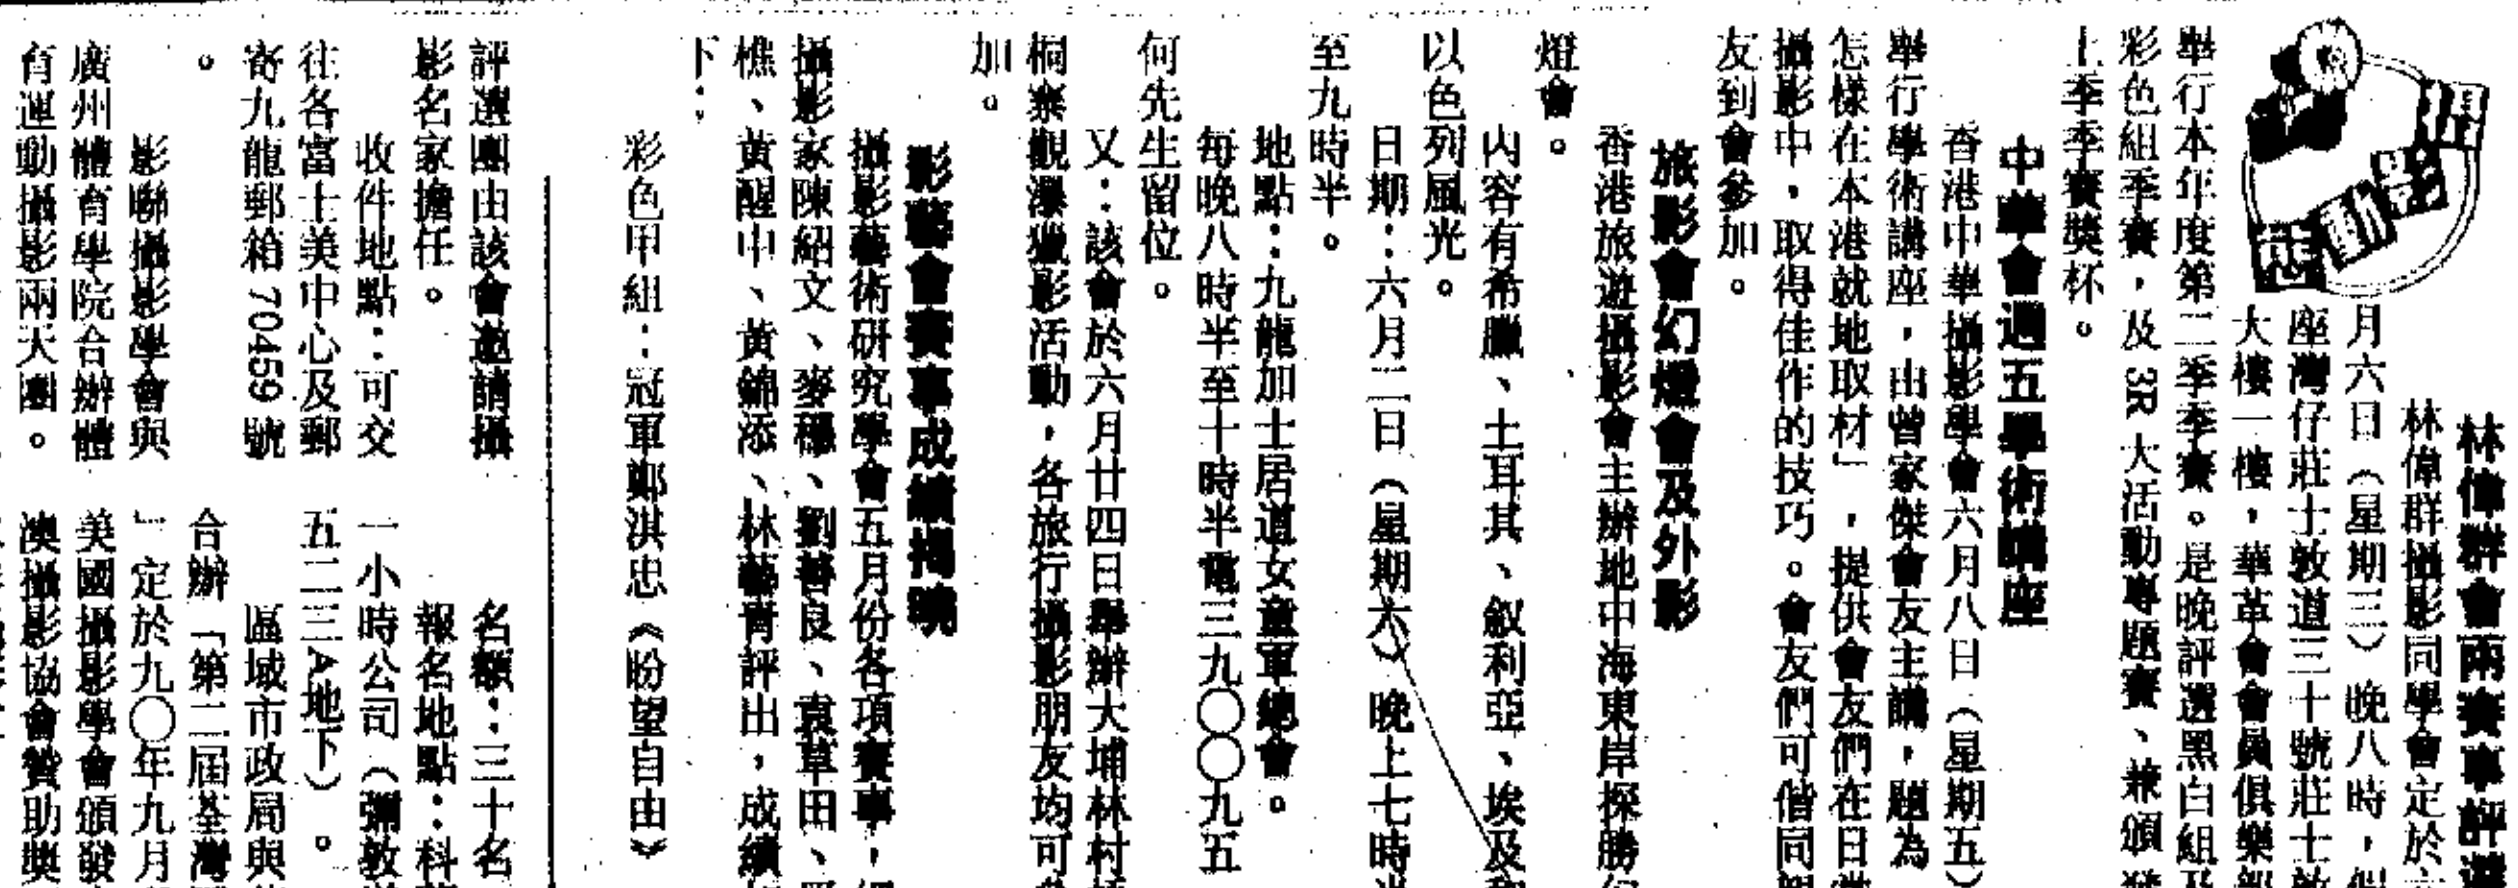 林偉群會兩賽事評選
林偉群攝影同學會定於六
月六日（星期三）晚八時，假
座灣仔莊士敦道三十號莊士敦
大樓一樓，華革會會員俱樂部
舉行本年度第二季季賽。是晚評選黑白組及
彩色組季賽，及3R大活動專題賽、兼頒發
上季季賽獎杯。
中華會週五學術講座
香港中華攝影學會六月八日（星期五）
舉行學術講座，由曾家傑會友主講，題為
怎樣在本港就地取材」，提供會友們在日常
攝影中，取得佳作的技巧。會友們可偕同親
友到會參加。
旅影會幻燈會及外影
香港旅遊攝影會主辦地中海東岸探勝幻
燈會。
內容有希臘、土耳其、叙利亞、埃及和
以色列風光。
日期：六月二日（星期六）晚上七時半
至九時半。
地點：九龍加士居道女童軍總會。
每晚八時半至十時半電三九〇〇九五
何先生留位。
又：該會於六月廿四日舉辦大埔林村梧
桐寨觀瀑獵影活動，各旅行攝影朋友均可參
加。
影藝會賽事成績揭曉
攝影藝術研究學會五月份各項賽事，經
攝影家陳紹文、麥穗、劉善良、袁草田、
樵、黃醒中、黃錦添、林藝青評出，成績如
下：
彩色甲組：冠軍鄭淇忠《盼望自由》
評選團由該會邀請攝
影名家擔任。
收件地點：可交
往各富士美中心及郵
寄九龍郵箱70459號
。
影聯攝影學會與
廣州體育學院合辦體
育運動攝影兩天團。
名額：三十名
報名地點：科藝
一小時公司（彌敦道
五二三A地下）。
區域市政局與
合辦「第二屆荃灣
」定於九〇年九月
美國攝影學會頒發
澳攝影協會贊助獎